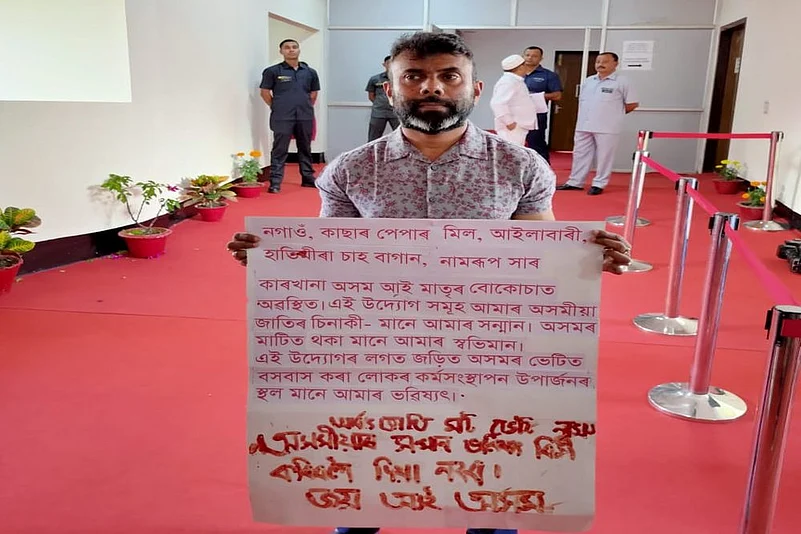 নগাওঁ, কাছাৰ পেপাৰ মিল, আইলাবাৰী,
হাতিখীৰা চাহ বাগান, নামৰূপ সাৰ
কাৰখানা অসম আই মাতৃৰ বোকোচাত
অৱস্থিত। এই উদ্যোগ সমূহ আমাৰ অসমীয়া
জাতিৰ চিনাকী- মানে আমাৰ সন্মান। অসমৰ
মাটিত থকা মানে আমাৰ স্বভিমান।
এই উদ্যোগৰ লগত জড়িত অসমৰ ভেটিত
বসবাস কৰা লোকৰ কৰ্মসংস্থাপন উপাৰ্জনৰ
স্থল মানে আমাৰ ভৱিষ্যৎ।
অসমীয়াৰ
কৰিবলৈ দিয়া নহব।
জয় আই অসম